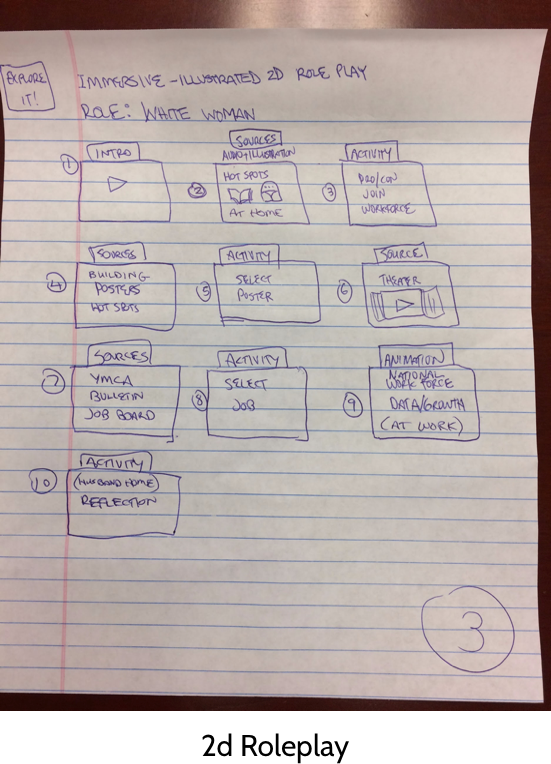 EXPLORE
IT!
IMMERSIVE - ILLUSTRATED 2D ROLE PLAY
ROLE: WHITE WOMAN
① INTRO
② SOURCES
AUDIO + ILLUSTRATION
HOT SPOTS
AT HOME
③ ACTIVITY
PRO/CON
JOIN
WORKFORCE
④ SOURCES
BUILDING
POSTERS
HOT SPOTS
⑤ ACTIVITY
SELECT
POSTER
⑥ SOURCE
THEATER
⑦ SOURCES
YMCA
BULLETIN
JOB BOARD
⑧ ACTIVITY
SELECT
JOB
⑨ ANIMATION
NATIONAL
WORK FORCE
DATA/GROWTH
(AT WORK)
⑩ ACTIVITY
(HUSBAND HOME)
REFLECTION
3
2d Roleplay